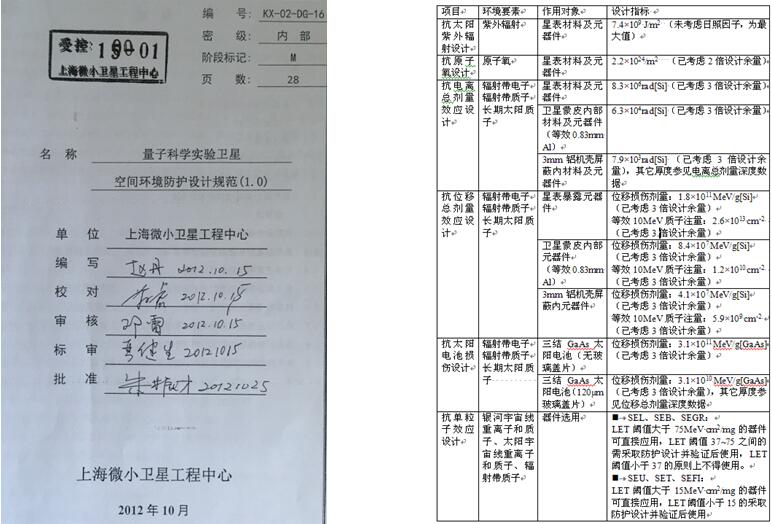 编 号: KX-02-DG-16
密 级: 内 部
阶段标记: M
页 数: 28
受控:
01
上海微小卫星工程中心
名 称 量子科学实验卫星
空间环境防护设计规范(1.0)
单 位 上海微小卫星工程中心
编 写 赵丹 2012.10.15
校 对 2012.10.15
审 核 邓雷 2012.10.15
标 审 20121015
批 准 20121025
上海微小卫星工程中心
2012 年 10 月
项目 环境要素 作用对象 设计指标
抗太阳紫外辐射设计
紫外辐射
星表材料及元器件
7.4×10⁹ J/m² (未考虑日照因子，为最大值)
抗原子氧设计
原子氧
星表材料及元器件
2.2×10²⁴/m² (已考虑 2 倍设计余量)
抗电离总剂量效应设计
辐射带电子
辐射带质子
长期太阳质子
星表材料及元器件
8.3×10⁶rad[Si] (已考虑 3 倍设计余量)
卫星蒙皮内部材料及元器件
(等效 0.83mm Al)
6.3×10⁴rad[Si] (已考虑 3 倍设计余量)
3mm 铝机壳屏蔽内材料及元器件
7.9×10³rad[Si] (已考虑 3 倍设计余量)，其它厚度参见电离总剂量深度数据
抗位移总剂量效应设计
辐射带电子
辐射带质子
长期太阳质子
星表暴露元器件
位移损伤剂量：1.8×10¹¹MeV/g[Si]
(已考虑 3 倍设计余量)
等效 10MeV 质子注量：2.6×10¹³cm⁻²
(已考虑 3 倍设计余量)
卫星蒙皮内部元器件
(等效 0.83mm Al)
位移损伤剂量：8.4×10⁷MeV/g[Si]
(已考虑 3 倍设计余量)
等效 10MeV 质子注量：1.2×10¹⁰cm⁻²
(已考虑 3 倍设计余量)
3mm 铝机壳屏蔽内元器件
位移损伤剂量：4.1×10⁷MeV/g[Si]
(已考虑 3 倍设计余量)
等效 10MeV 质子注量：5.9×10⁹cm⁻²
(已考虑 3 倍设计余量)
抗太阳电池损伤设计
辐射带电子
辐射带质子
长期太阳质子
三结 GaAs 太阳电池（无玻璃盖片）
位移损伤剂量：3.1×10¹¹MeV/g[GaAs]
(已考虑 3 倍设计余量)
三结 GaAs 太阳电池（120μm 玻璃盖片）
位移损伤剂量：3.1×10¹⁰MeV/g[GaAs]
(已考虑 3 倍设计余量)，其它厚度参见位移总剂量深度数据
抗单粒子效应设计
银河宇宙线重离子和质子、太阳宇宙线重离子和质子、辐射带质子
器件选用
■→SEL、SEB、SEGR:
LET 阈值大于 75MeV·cm²/mg 的器件可直接应用，LET 阈值 37~75 之间的需采取防护设计并验证后使用，LET 阈值小于 37 的原则上不得使用。
■→SEU、SET、SEFI:
LET 阈值大于 15MeV·cm²/mg 的器件可直接应用，LET 阈值小于 15 的采取防护设计并验证后使用